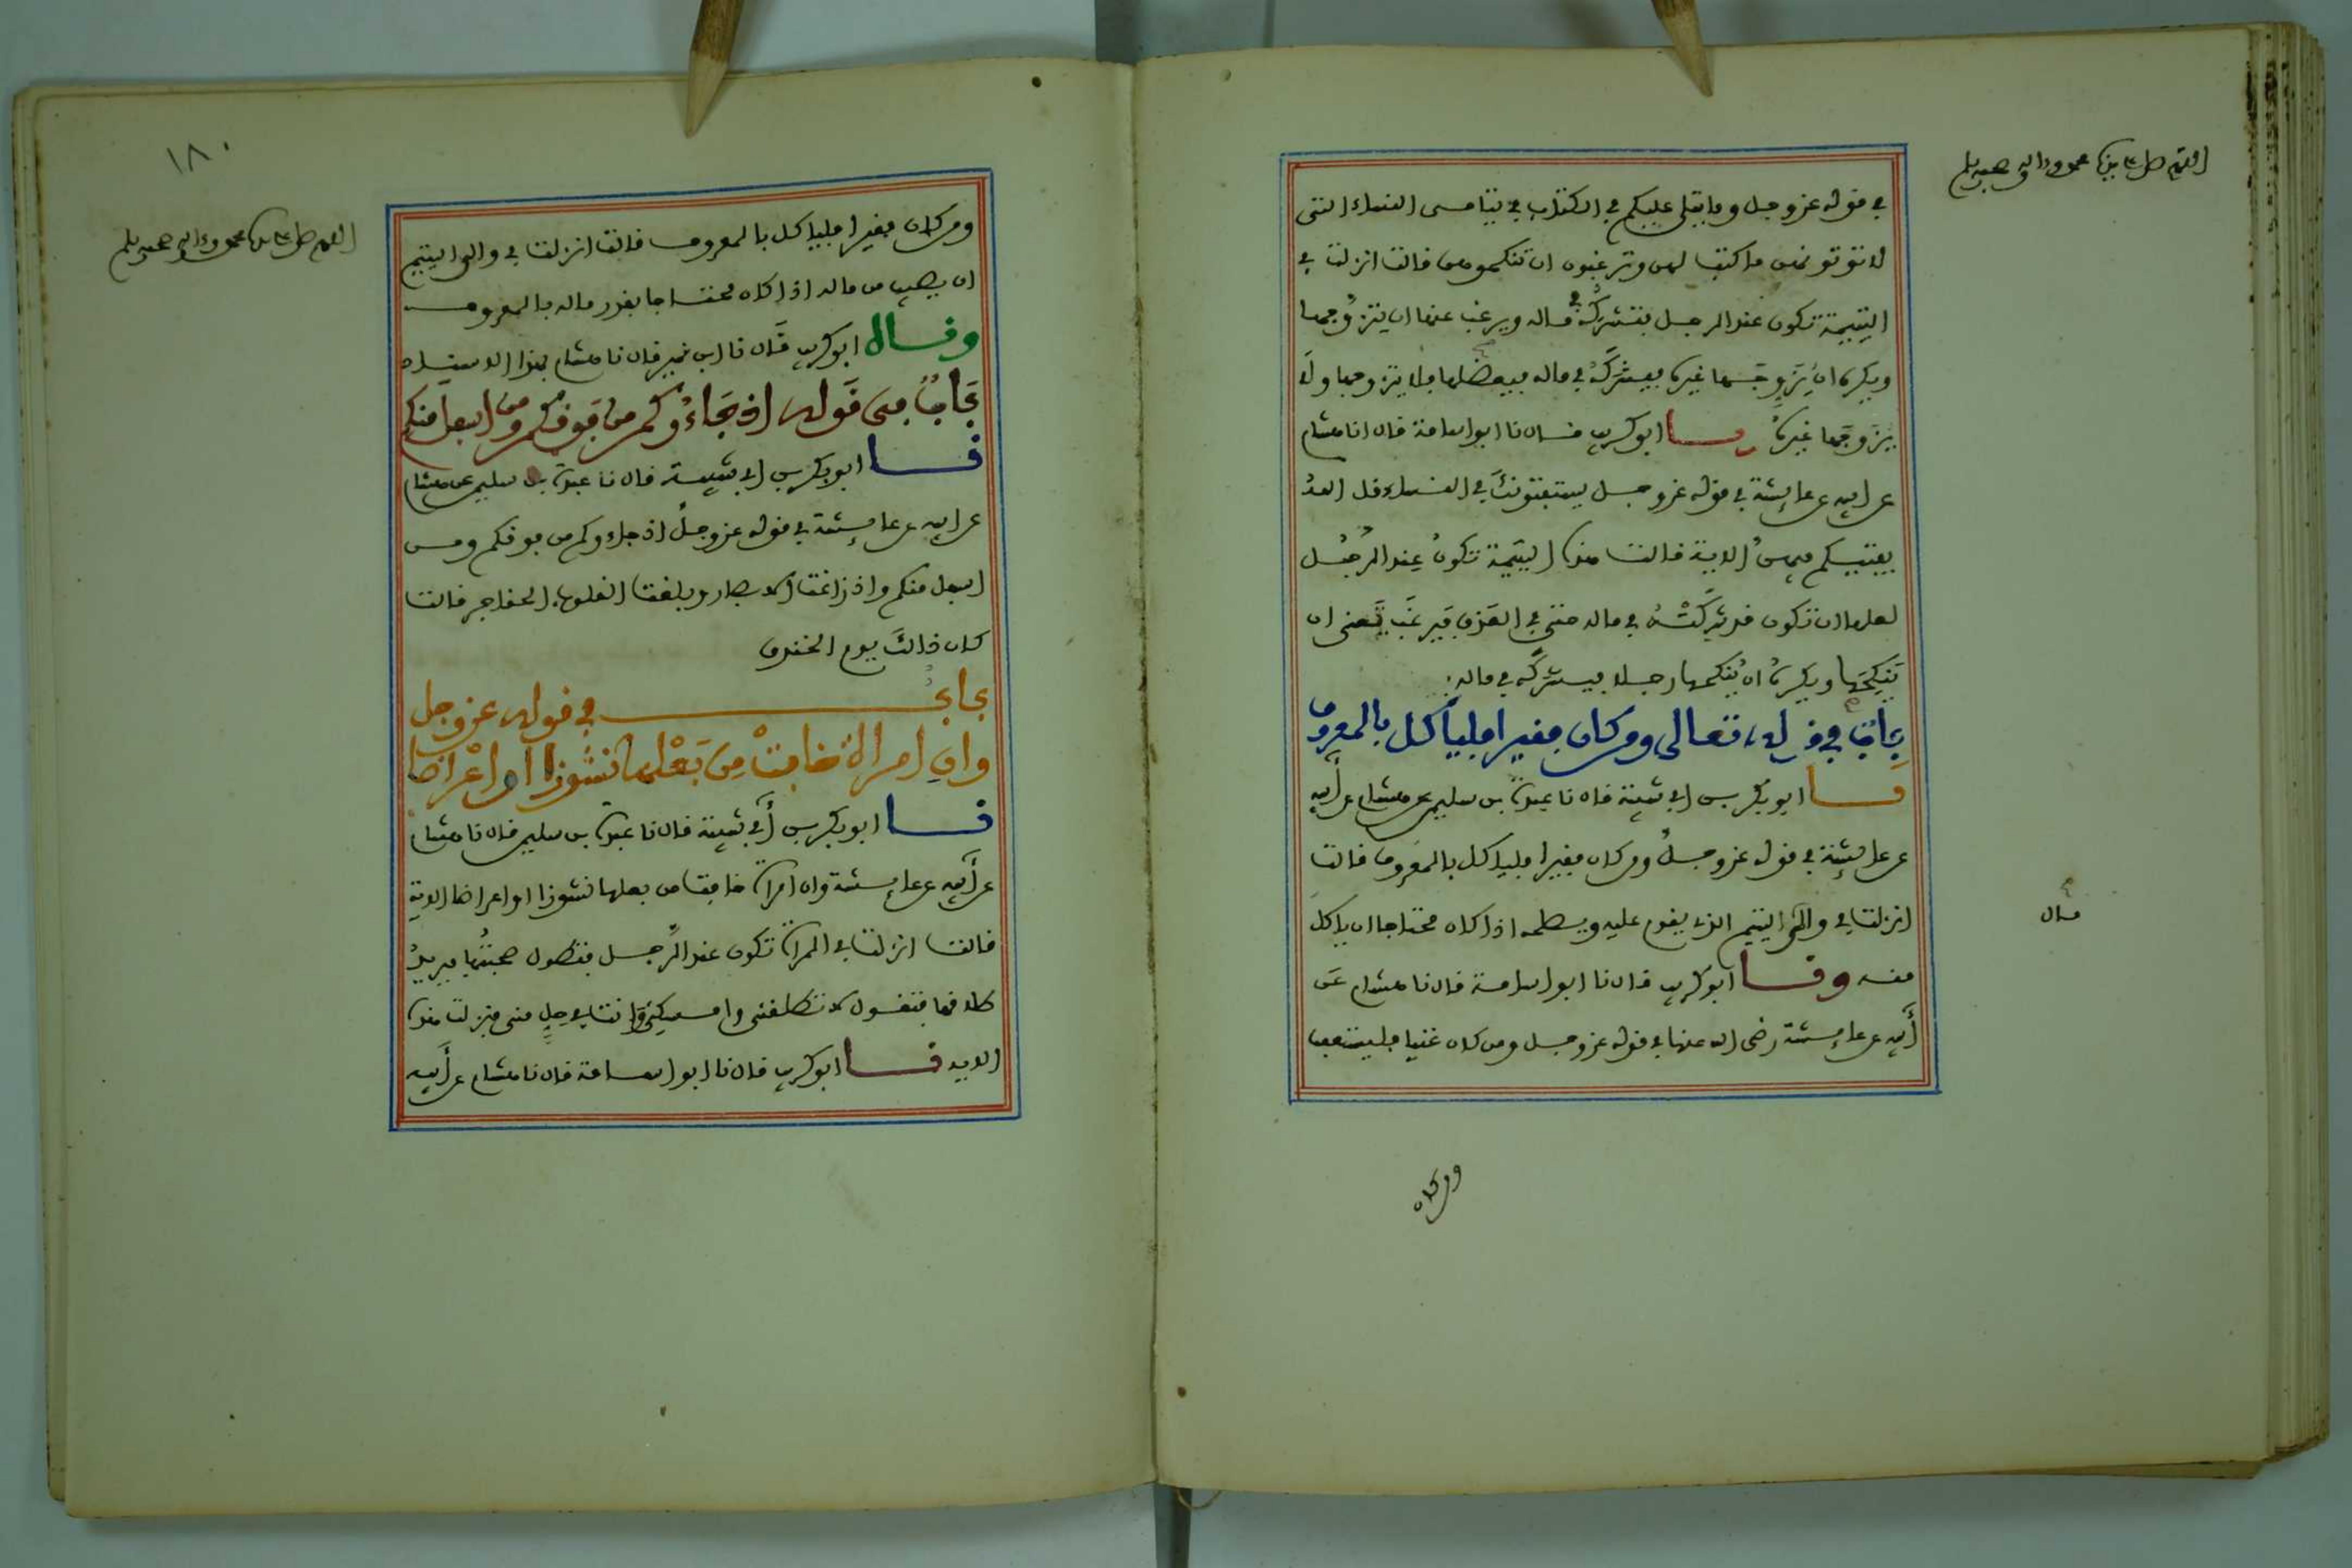 اللهم صل على سيدنا محمد وءاله وصحبه وسلم
في قوله عز وجل وما يتلى عليكم في الكتاب في يتامى النساء التي
لا توتونهن ما كتب لهن وترغبون ان تنكحوهن قالت انزلت في
اليتيمة تكون عند الرجل فتشركه في ماله ويرغب عنها ان يتزوجها
ويكره ان يزوجها غيره فيشركه في ماله فيعضلها فلا يتزوجها ولا
يزوجها غيره نا ابو كريب قال نا ابو اسامة قال انا هشام
عن ابيه عن عائشة في قوله عز وجل يستفتونك في النساء قل الله
يفتيكم فيهن الاية قالت هذه اليتيمة تكون عند الرجل
لعلها ان تكون قد شركته في ماله حتى في العذق فيرغب يعني ان
ينكحها ويكره ان ينكحها رجلا فيشركه في ماله
باب في قوله تعالى ومن كان فقيرا فلياكل بالمعروف
نا ابو بكر بن ابي شيبة قال نا عبدة بن سليمن عن هشام عن أبيه
عن عائشة في قوله عز وجل ومن كان فقيرا فلياكل بالمعروف قالت
انزلت في والي اليتيم الذي يقوم عليه ويصلحه اذا كان محتاجا ان ياكل
مال
منه ونا ابو كريب قال نا ابو اسامة قال نا هشام عن
أبيه عن عائشة رضى الله عنها في قوله عز وجل ومن كان غنيا فليستعفف
ومن كان
١٨٠
اللهم صل على سيدنا محمد وءاله وصحبه وسلم
ومن كان فقيرا فلياكل بالمعروف قالت انزلت في والي اليتيم
ان يصيب من ماله اذا كان محتاجا بقدر ماله بالمعروف
وقال ابو كريب قال نا ابن نمير قال نا هشام بهذا الاسناد
باب في قوله اذ جاءوكم من فوقكم ومن اسفل منكم
نا ابو بكر بن ابي شيبة قال نا عبدة بن سليمن عن هشام
عن ابيه عن عائشة في قوله عز وجل اذ جاءوكم من فوقكم ومن
اسفل منكم واذ زاغت الابصار وبلغت القلوب الحناجر قالت
كان ذالك يوم الخندق
باب في قوله عز وجل
وان امراة خافت من بعلها نشوزا او اعراضا
نا ابو بكر بن أبي شيبة قال نا عبدة بن سليمن قال نا هشام
عن أبيه عن عائشة وان امراة خافت من بعلها نشوزا او اعراضا الاية
قالت انزلت في المراة تكون عند الرجل فتطول صحبتها فيريد
طلاقها فتقول لا تطلقني وامسكني وانت في حل مني فنزلت هذه
الاية نا ابو كريب قال نا ابو اسامة قال نا هشام عن أبيه